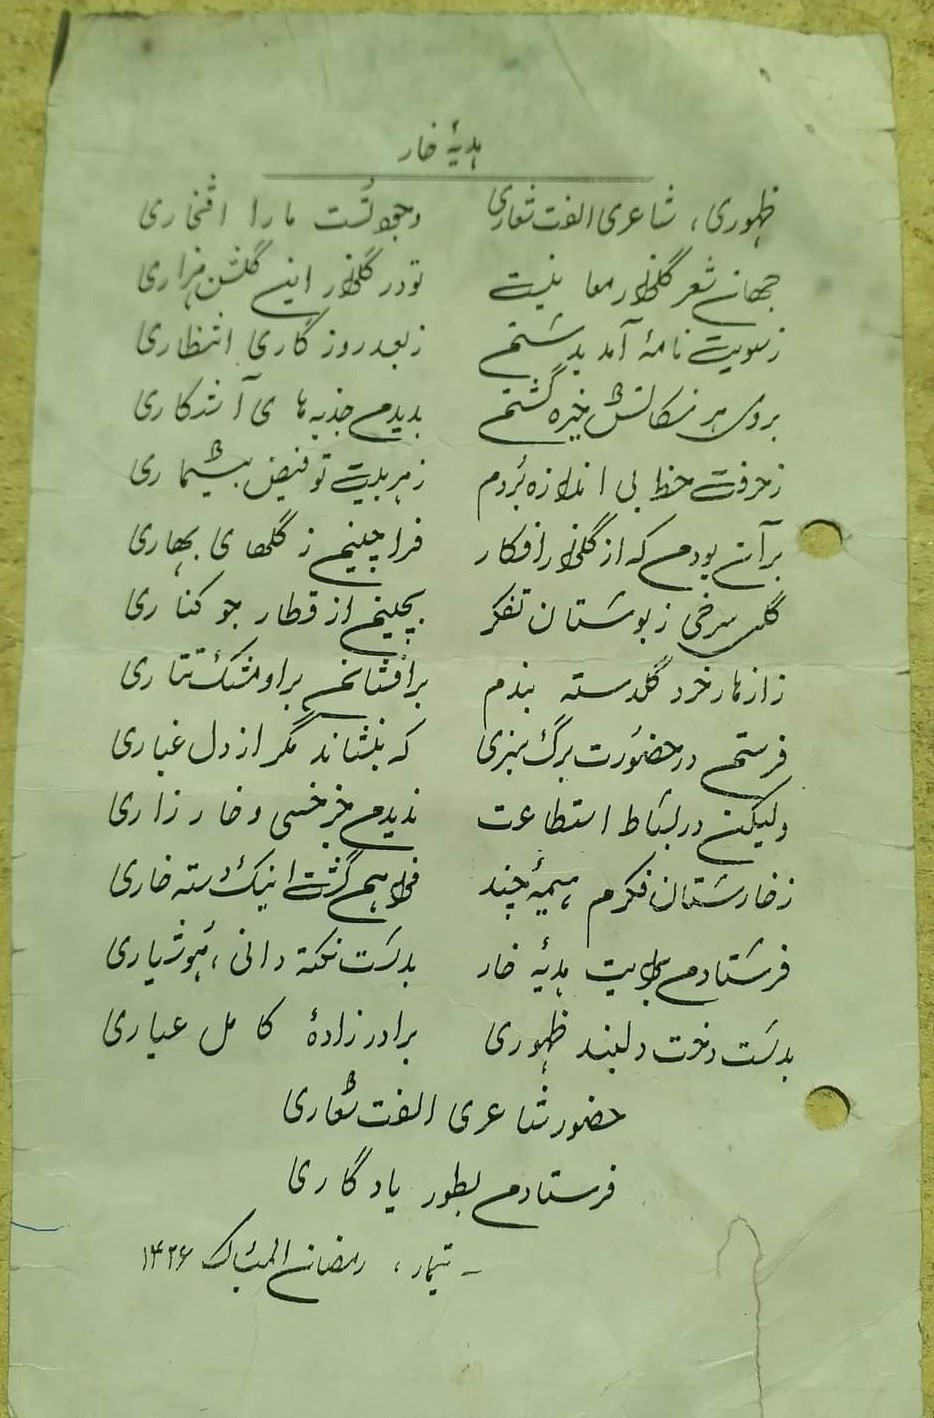 هدیهٔ خار
ظهوری، شاعری الفت شعاری وجودتست ما را افتخاری
جهان شعر گلزار معانیست تو در گلزار این گلشن هزاری
زسویت نامهٔ آمد بدستم زبعد روزگاری انتظاری
بروی هر نکاتش خیره گشتم بدیدم جذبه های آشکاری
زحرفت حظ بی اندازه بُردم زهر بیت تو فیض بیشماری
برآن بودم که از گلزار افکار فرا چینم ز گلهای بهاری
گل سرخی ز بوستان تفکر بچینم از قطار جو کناری
زازهار خرد گلدسته بندم برافشانم براو مشک تتاری
فرستم در حضورت برگ سبزی که بنشاند مگر از دل غباری
ولیکن در بساط استطاعت ندیدم جز خسی و خار زاری
زخارستان فکرم هیمهٔ چند فراهم گشت اینک دسته خاری
فرستادم برایت هدیهٔ خار بدست نکته دانی، هوشیاری
بدست دخت دلبند ظهوری برادرزادهٔ کامل عیاری
حضور شاعری الفت شعاری
فرستادم بطور یادگاری
_ تیمار، رمضان المبارک ۱۴۲۶